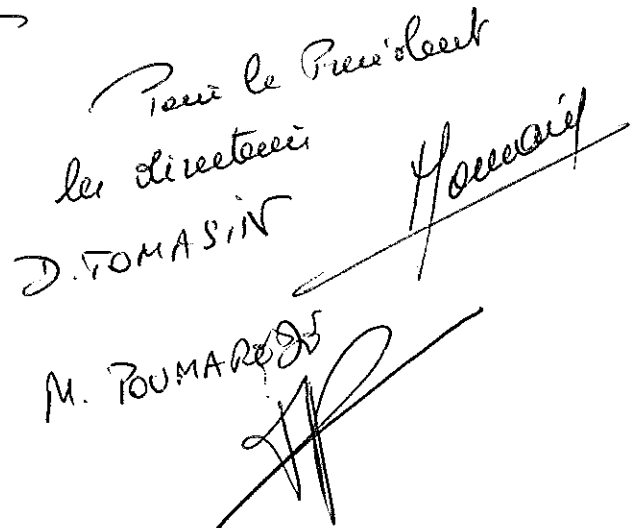 Pour le Président
les directeurs
D. TOMASIN
M. POUMARÈDE